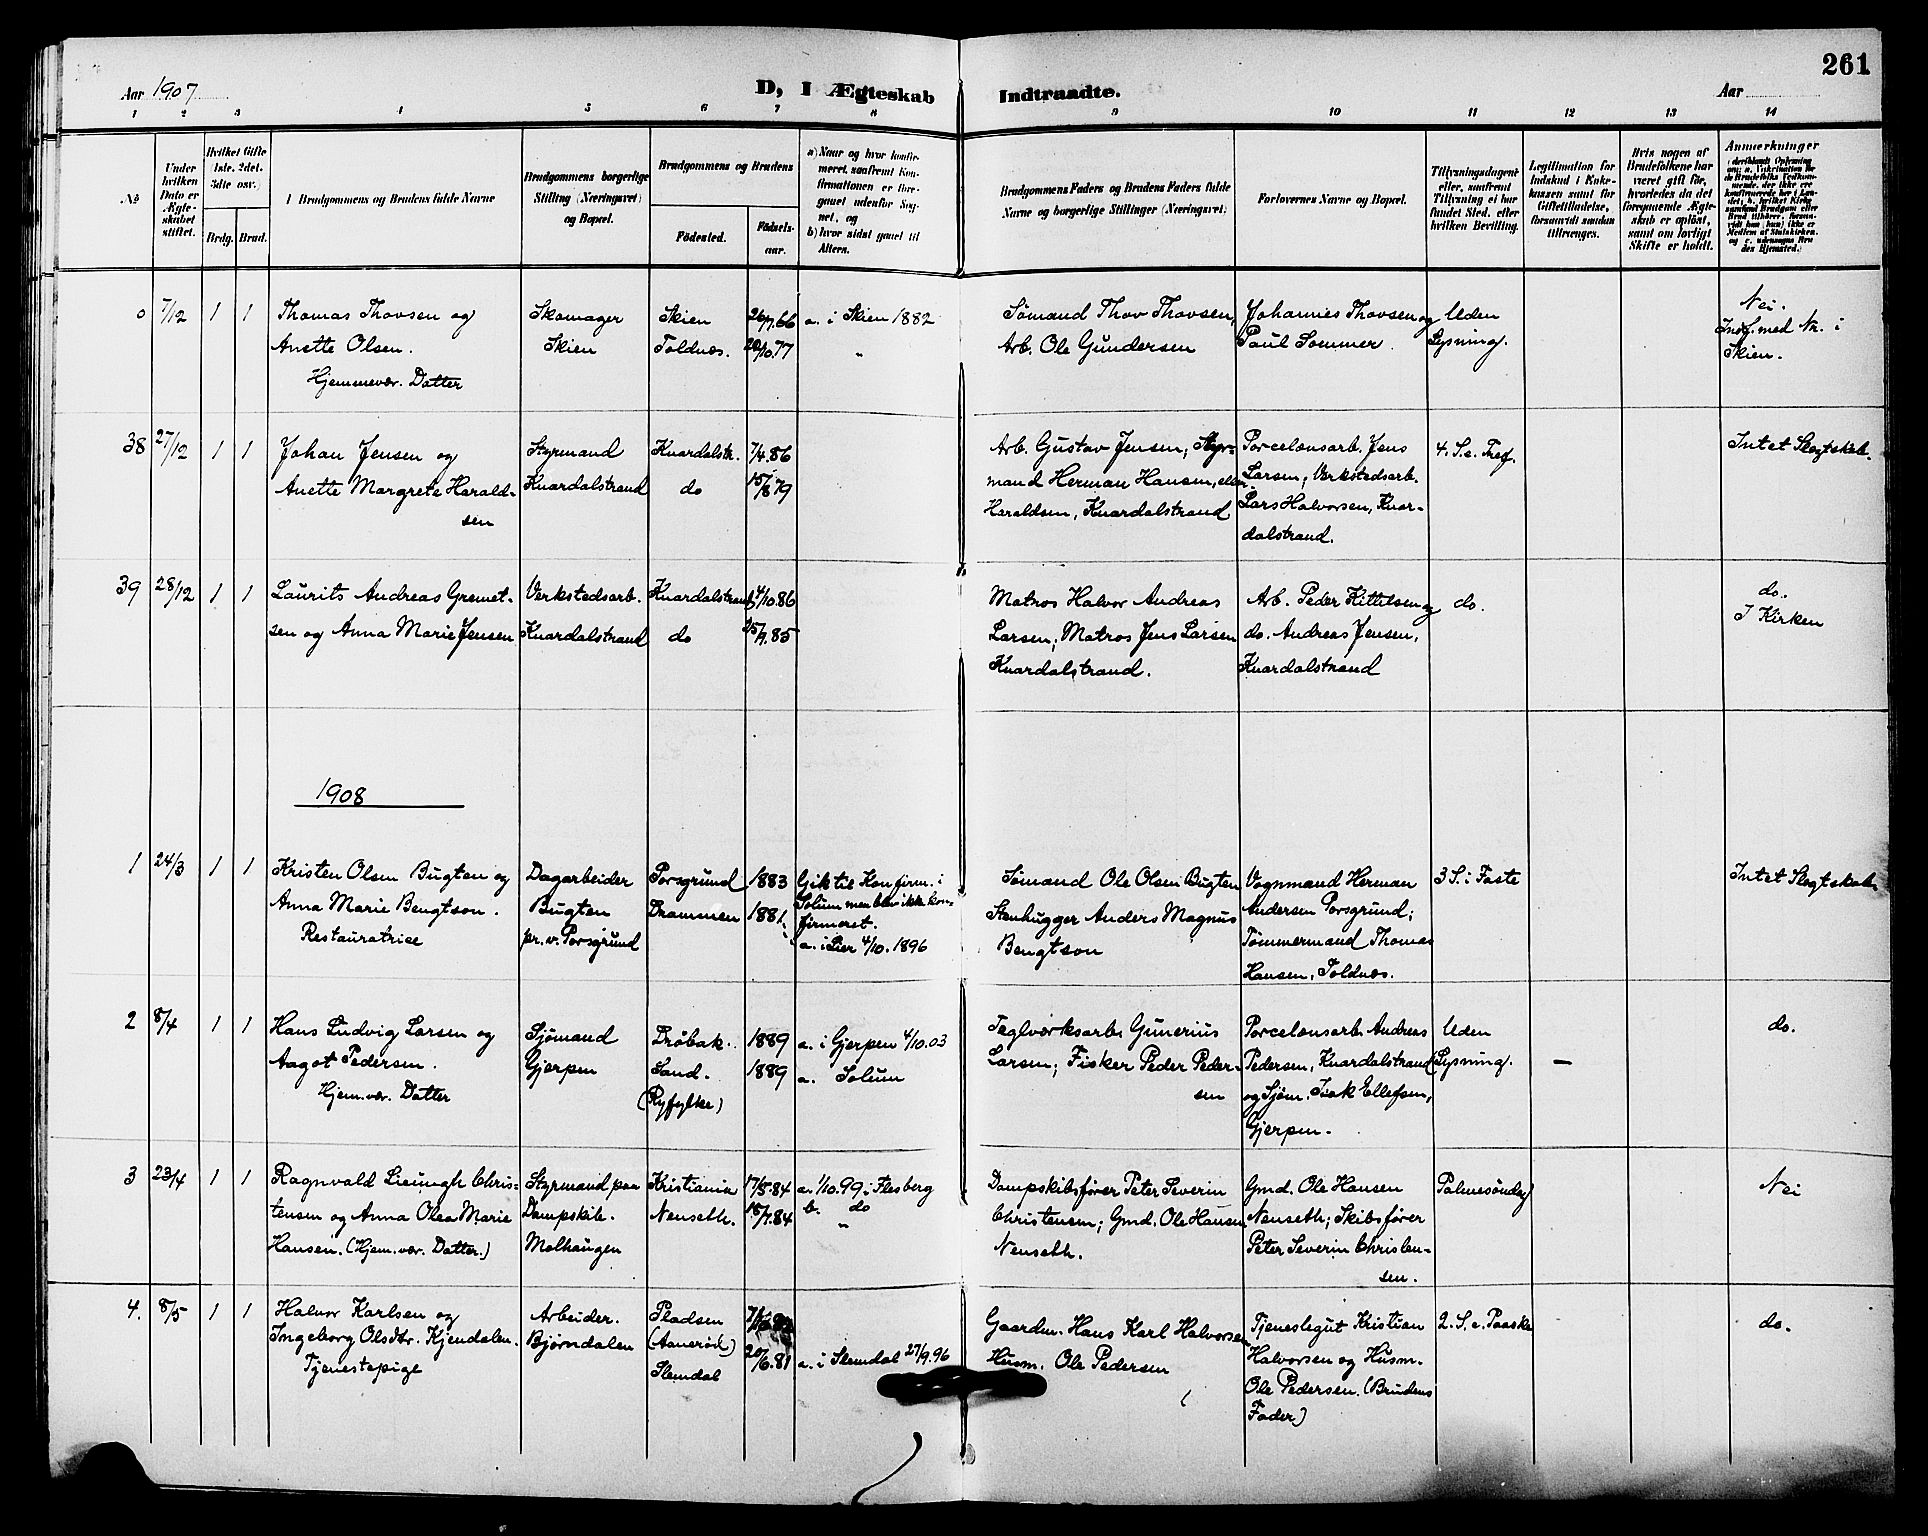 261
Aar 1907
D, I Ægteskab Indtraadte.
Aar
1 2 3 4 5 6 7 8 9 10 11 12 13 14
No
Under hvilken Dato er Ægteskabet stiftet.
Hvilket Gifte 1ste. 2det. 3die osv.
Brdg. Brud.
Brudgommens og Brudens fulde Navne
Brudgommens borgerlige Stilling (Næringsvei) og Bopæl.
Brudgommens og Brudens
Fødested.
Fødselsaar.
a) Naar og hvor konfirmeret, saafremt Konfirmationen er foregaaet udenfor Sognet, og
b) hvor sidst gaaet til Alters.
Brudgommens Faders og Brudens Faders fulde Navne og borgerlige Stillinger (Næringsvei)
Forlovernes Navne og Bopæl.
Tillysningsdagene eller, saafremt Tillysning ei har fundet Sted, efter hvilken Bevilling.
Legitimation for Indskud i Enkekassen samt for Giftetilladelse, forsaavidt saadan tiltrænges.
Hvis nogen af Brudefolkene har været gift før, hvorledes da det foregaaende Ægteskab er opløst, samt om lovligt Skifte er holdt.
Anmerkninger
0 7/12 1 1
Thomas Thovsen og
Anette Olsen.
Hjemmevær. Datter
Skomager
Skien
Skien
Toldnæs.
26/7.66
20/10.77
a. i Skien 1882
"
Sømand Thov Thovsen,
Arb. Ole Gundersen
Johannes Thovsen og
Paul Sommer
Uden
Lysning.
Nei.
Indf. med Nr. i
Skien.
38 27/12 1 1
Johan Jensen og
Anette Margrete Harald-
sen
Styrmand
Knardalstrand
Knardalstr.
do
7/4.86
15/8 79
Arb. Gustav Jensen; Styr-
mand Herman Hansen, eller
Haraldsen, Knardalstrand
Porcelænsarb. Jens
Larsen; Verkstedsarb.
Lars Halvorsen, Knar-
dalstrand.
4. S. e. Tref.
Intet Slegtskab.
39 28/12 1 1
Laurits Andreas Gremet-
sen og Anna Marie Jensen
Verkstedsarb.
Knardalstrand
Knardalstrand
do
4/10.86
25/7.85
Matros Halvor Andreas
Larsen; Matros Jens Larsen
Knardalstrand.
Arb. Peder Kittilsen og
do. Andreas Jensen,
Knardalstrand
do.
do.
I Kirken
1908
1 24/3 1 1
Kristen Olsen Bugten og
Anna Marie Bengtson.
Restauratrice
Dagarbeider
Bugten
pr. v. Porsgrund
Porsgrund
Drammen
1883
1881
Gik til Konfirm. i
Solum men blev ikke kon-
firmeret.
a. i Lier 4/10. 1896
Sømand Ole Olsen Bugten
Stenhugger Anders Magnus
Bengtson
Vognmand Herman
Andersen Porsgrund;
Tømmermand Thomas
Hansen, Toldnæs.
3 S. i Faste
Intet Slegtskab
2 8/4 1 1
Hans Ludvig Larsen og
Aagot Pedersen.
Hjem.vær. Datter
Sjømand
Gjerpen
Drøbak.
Sand.
(Ryfylke)
1889
1889
a. i Gjerpen 4/10.03
a. Solum
Teglværksarb. Gunerius
Larsen; Fisker Peder Peder-
sen
Porcelænsarb. Andreas
Pedersen, Knardalstrand
og Sjøm. Isak Ellefsen,
Gjerpen.
Uden
Lysning.
—
do.
3 23/4 1 1
Ragnvald Lieungh Chris-
tensen og Anna Olea Marie
Hansen. (Hjem.vær. Datter.)
Styrmand paa
Dampskib.
Melhaugen
Kristiania
Nenseth.
17/5.84
15/7.84
a. 1/10.99 i Flesberg
b. do
"
Dampskibsfører Peter Severin
Christensen; Gmd. Ole Hansen
Nenseth.
Gmd. Ole Hansen
Nenseth; Skibsfører
Peter Severin Christen-
sen.
Palmesøndag
Nei
4. 8/5 1 1
Halvor Karlsen og
Ingeborg Olsdtr. Kjendalen.
Tjenestepige
Arbeider.
Bjørndalen
Pladsen
(Aamerød)
Slemdal
20/6.81
a. i Slemdal 27/9.96
Gaardm. Hans Karl Halvorsen
Husm. Ole Pedersen
Tjenestegut Kristian
Halvorsen og Husm.
Ole Pedersen. (Brudens
Fader)
2. S. e. Paaske
do.